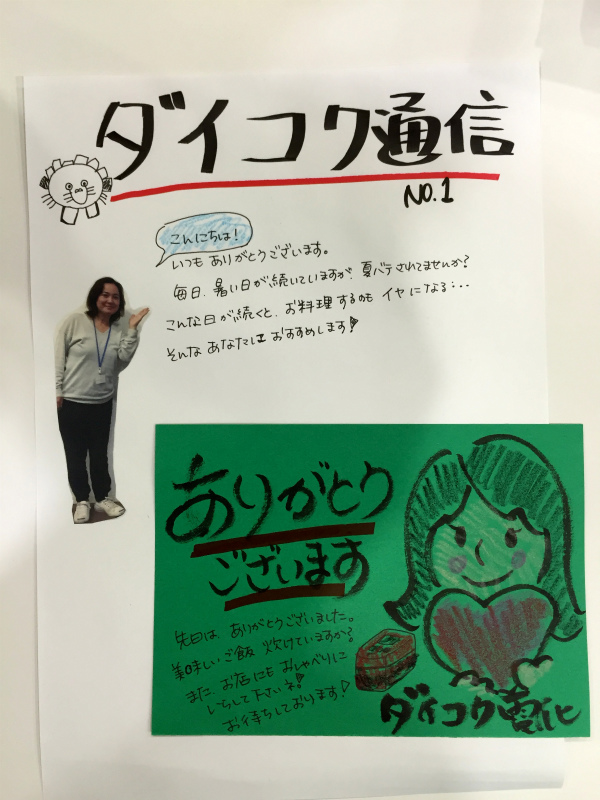 ダイコク通信
NO.1
こんにちは!
いつも ありがとうございます。
毎日、暑い日が続いていますが、夏バテされてませんか?
こんな日が続くと、お料理するのも イヤになる・・・
そんな あなたに おすすめします!
ありがとう
ございます
先日は ありがとうございました。
美味しいご飯 炊けていますか?
また、お店にも おしゃべりに
いらして下さいネ!
お待ちしております!
ダイコク電化